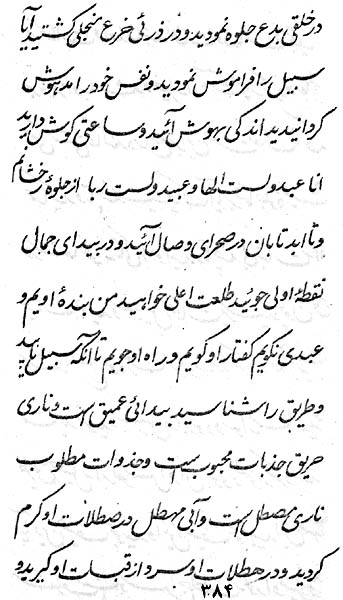 در خلقی بدع جلوه نمودید و در ذرئی خرع منجلی گشتید آیا
سبیل را فراموش نمودید و نفس خود را مدهوش
گردانیدید اندکی بهوش آئید و ساعتی گوش دارید
انا عبد ولست الها و عبید ولست ربا از جلوهٔ رخشانم
و تا ابد تابان در صحرای وصال آئید و در بیدای جمال
نقطهٔ اولی جوئید طلعت اعلی خواهید من بندهٔ اویم و
عبدی نکویم گفتار او گویم و راه او جویم تا آنکه سبیل یابید
و طریق را شناسید بیدائی عمیق است و ناری
حریق جذبات محبوب است و جذوات مطلوب
ناری مصطل است و آبی مهطل در صطلات او گرم
گردید و در هطلات او سرد از قبسات او گیرید و
۳۸۴